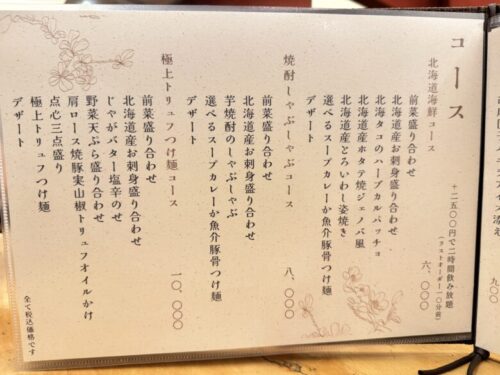 コース
+二五〇〇円で二時間飲み放題
(ラストオーダー一〇分前)
北海道海鮮コース
六、〇〇〇
前菜盛り合わせ
北海道産お刺身盛り合わせ
北海タコのハーブカルパッチョ
北海道産ホタテ焼ジェノバ風
北海道産とろいわし姿焼き
選べるスープカレーか魚介豚骨つけ麺
デザート
焼酎しゃぶしゃぶコース
八、〇〇〇
前菜盛り合わせ
北海道産お刺身盛り合わせ
芋焼酎のしゃぶしゃぶ
選べるスープカレーか魚介豚骨つけ麺
デザート
極上トリュフつけ麺コース
一〇、〇〇〇
前菜盛り合わせ
北海道産お刺身盛り合わせ
じゃがバター塩辛のせ
野菜天ぷら盛り合わせ
肩ロース焼豚実山椒トリュフオイルかけ
点心三点盛り
極上トリュフつけ麺
デザート
全て税込価格です